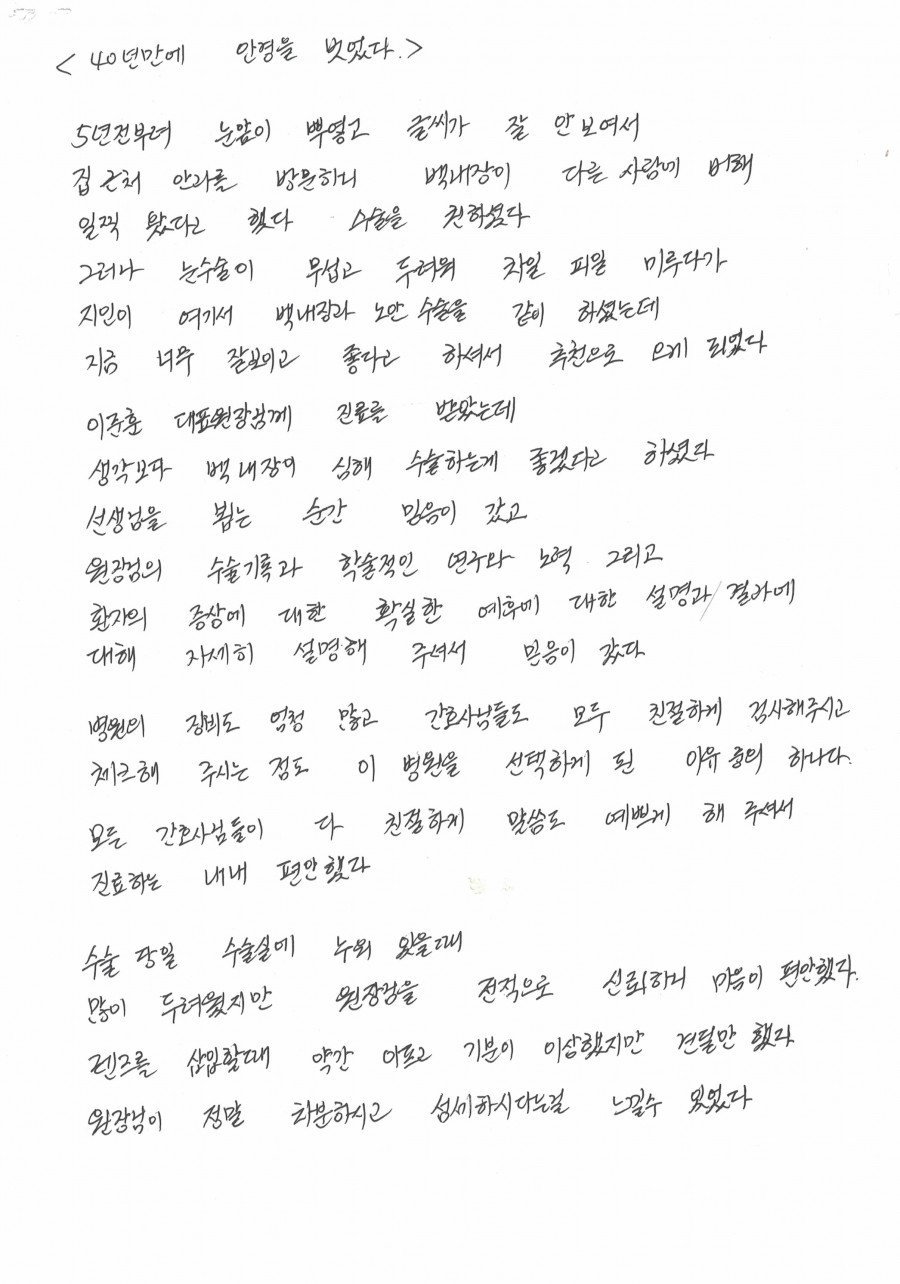 < 40년만에 안경을 벗었다.>
5년전부터 눈앞이 뿌옇고 글씨가 잘 안보여서
집 근처 안과를 방문하니 백내장이 다른 사람에 비해
일찍 왔다고 했다 수술을 권하셨다
그러나 눈수술이 무섭고 두려워 차일 피일 미루다가
지인이 여기서 백내장과 노안 수술을 같이 하셨는데
지금 너무 잘보이고 좋다고 하셔서 추천으로 오게 되었다
이준훈 대표원장님께 진료를 받았는데
생각보다 백내장이 심해 수술하는게 좋겠다고 하셨다
선생님을 뵙는 순간 믿음이 갔고
원장님의 수술기록과 학술적인 연구와 노력 그리고
환자의 증상에 대한 확실한 예후에 대한 설명과/결과에
대해 자세히 설명해 주셔서 믿음이 갔다
병원의 장비도 엄청 많고 간호사님들도 모두 친절하게 검사해주시고
체크해 주시는 점도 이 병원을 선택하게 된 이유 중의 하나다.
모든 간호사님들이 다 친절하게 말씀도 예쁘게 해 주셔서
진료하는 내내 편안했다
수술 당일 수술실에 누워 있을때
많이 두려웠지만 원장님을 전적으로 신뢰하니 마음이 편안했다.
렌즈를 삽입할때 약간 아프고 기분이 이상했지만 견딜만 했다
원장님이 정말 차분하시고 섬세하시다는걸 느낄수 있었다